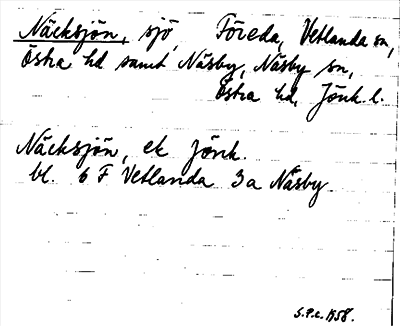 Näcksjön, sjö, Föreda, Vetlanda sn,
Östra hd samt Näsby, Näsby sn,
Östra hd, Jönk. l.
Näcksjön, ek Jönk.
bl. 6 F Vetlanda 3a Näsby.
S.P.C. 1958.